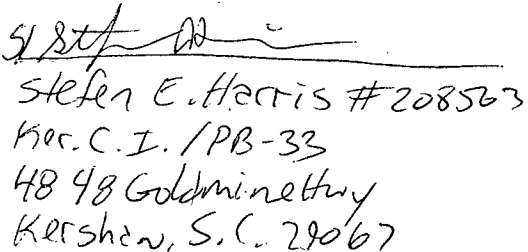 S/ Stefen Harris
Stefen E. Harris #208503
Ker. C. I. /PB-33
4848 Goldmine Hwy
Kershaw, S.C. 29067